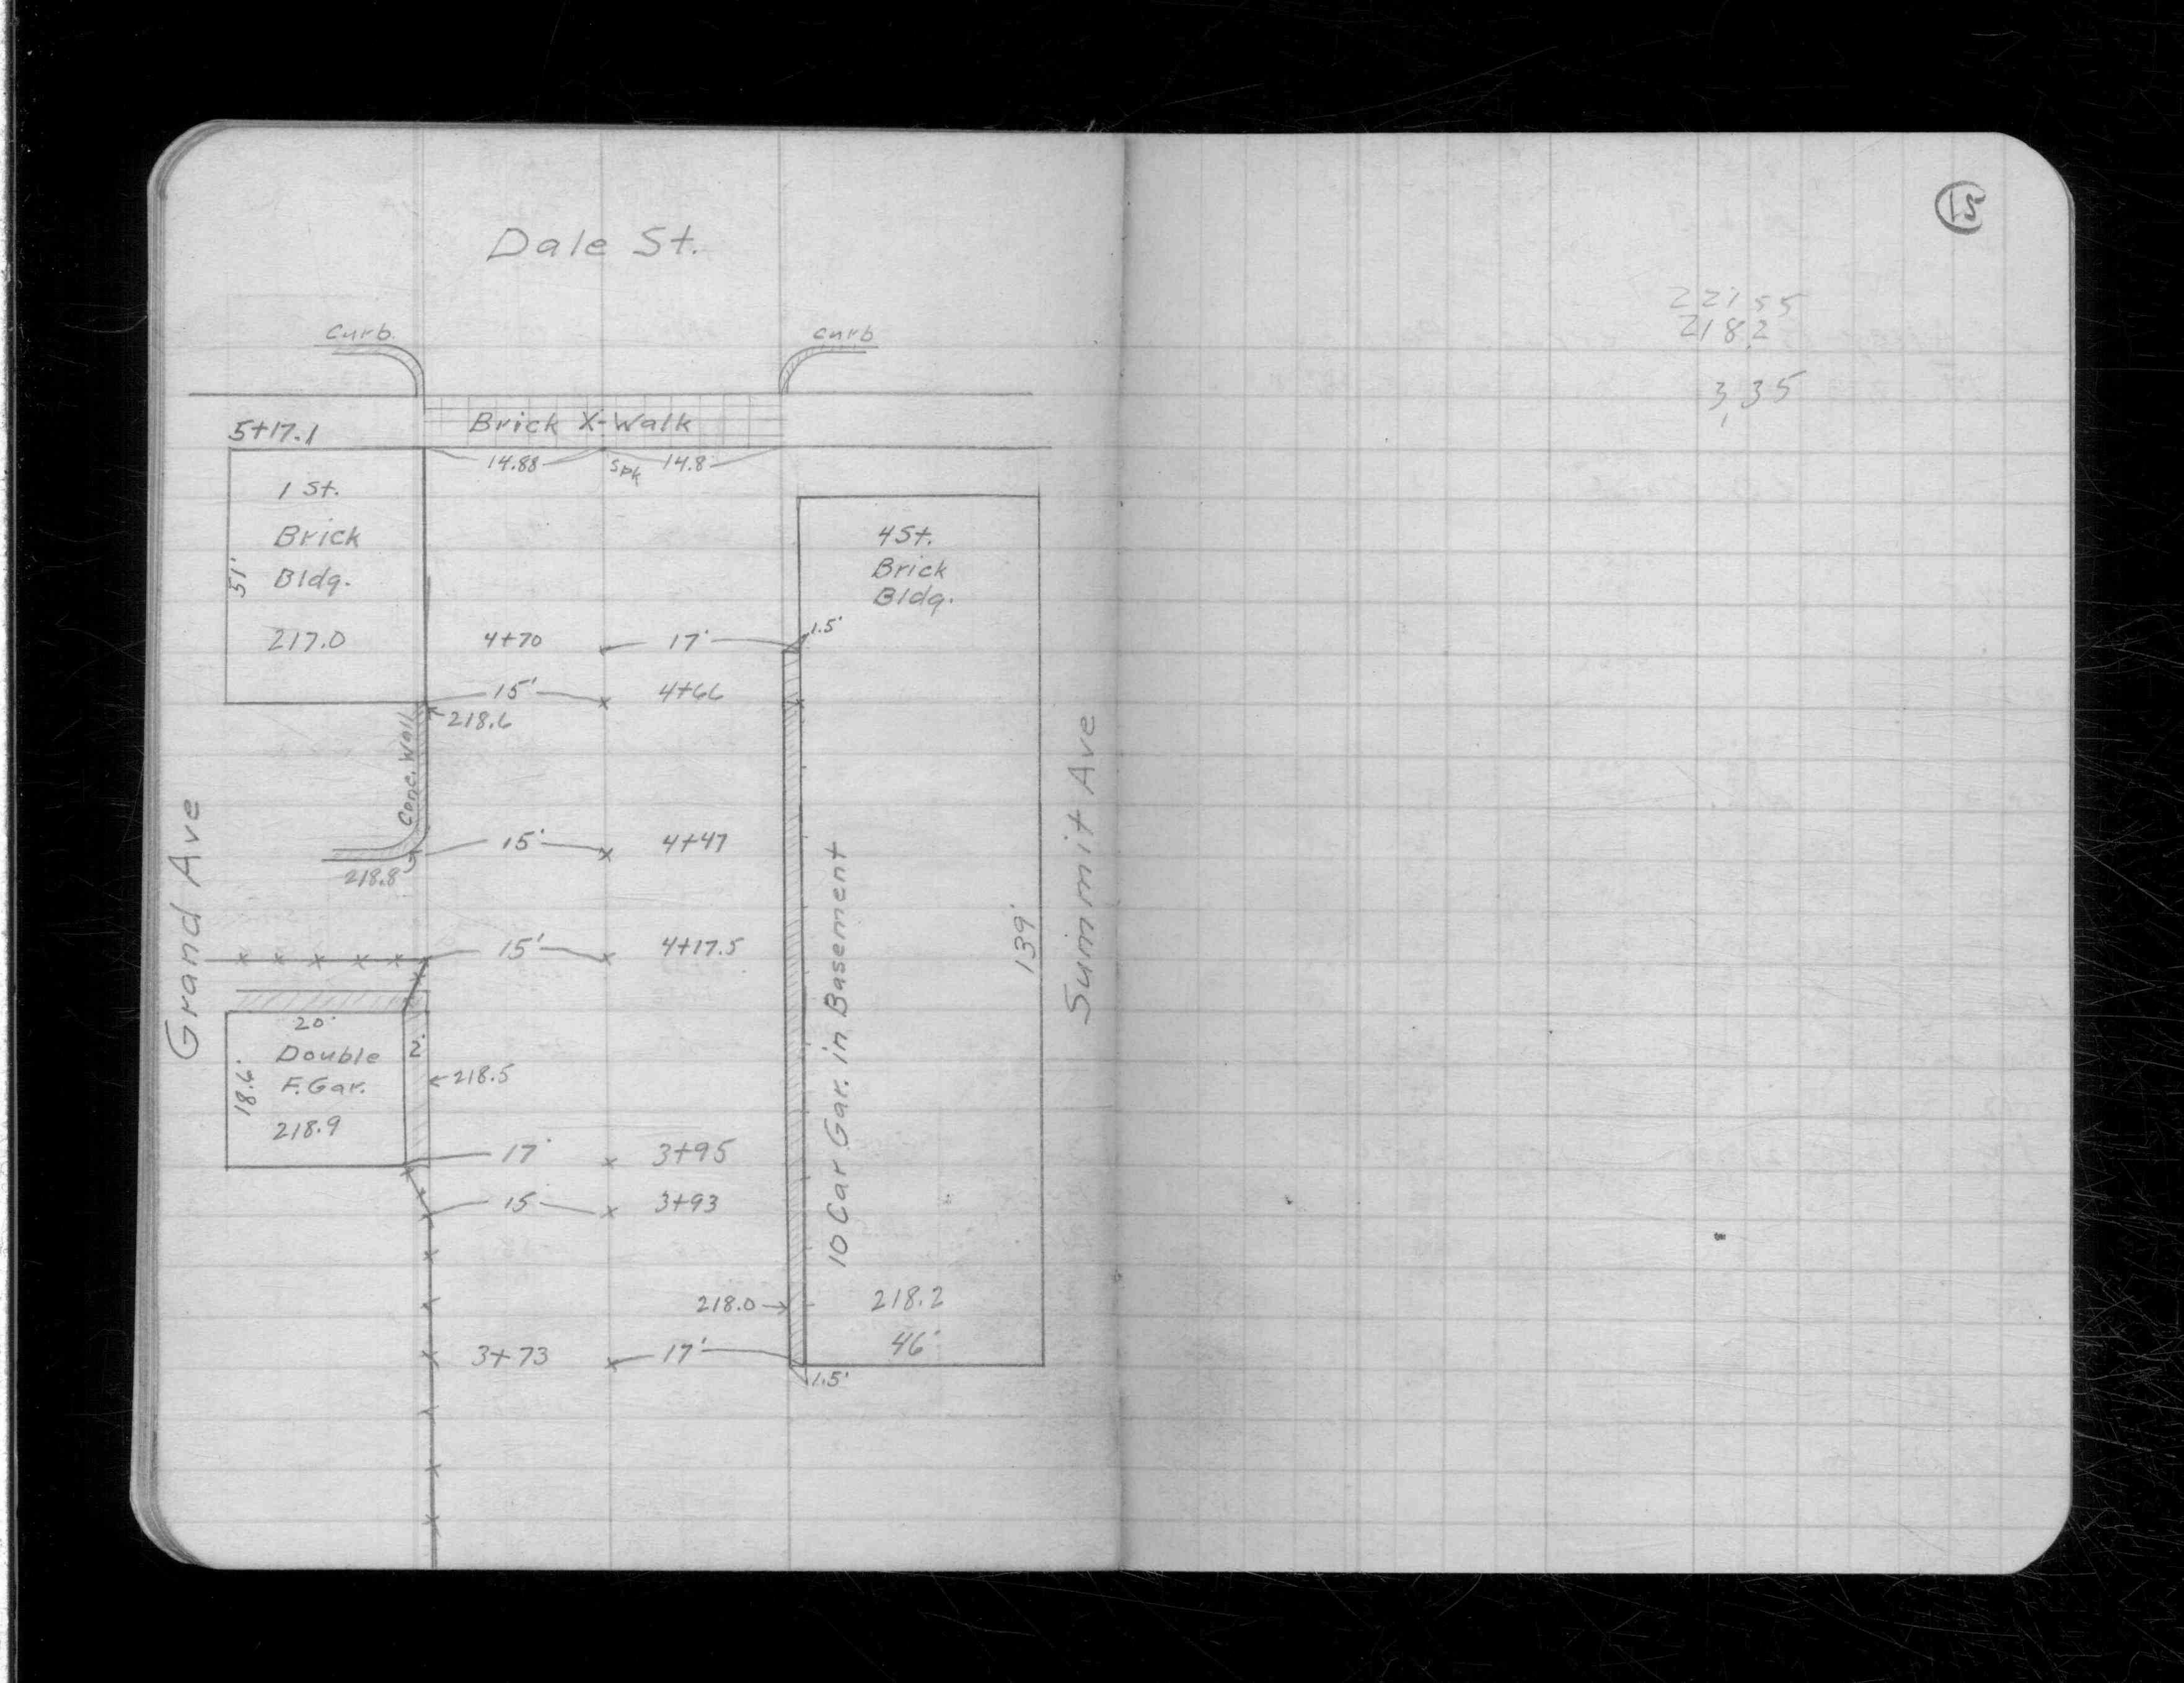 Dale St.
Curb.
curb
5+17.1
Brick X-Walk
14.88
Spk
14.8
1 St.
Brick
Bldg.
51'
217.0
4 St.
Brick
Bldg.
4+70
17'
1.5'
15'
4+66
218.6
Conc. Wall
15'
4+47
218.8
Grand Ave
15'
4+17.5
20'
Double
F. Gar.
218.9
18.6'
2'
218.5
17'
3+95
15
3+93
10 Car Gar. in Basement
139'
Summit Ave
218.0
218.2
46'
3+73
17'
1.5'
221 55
218.2
3.35